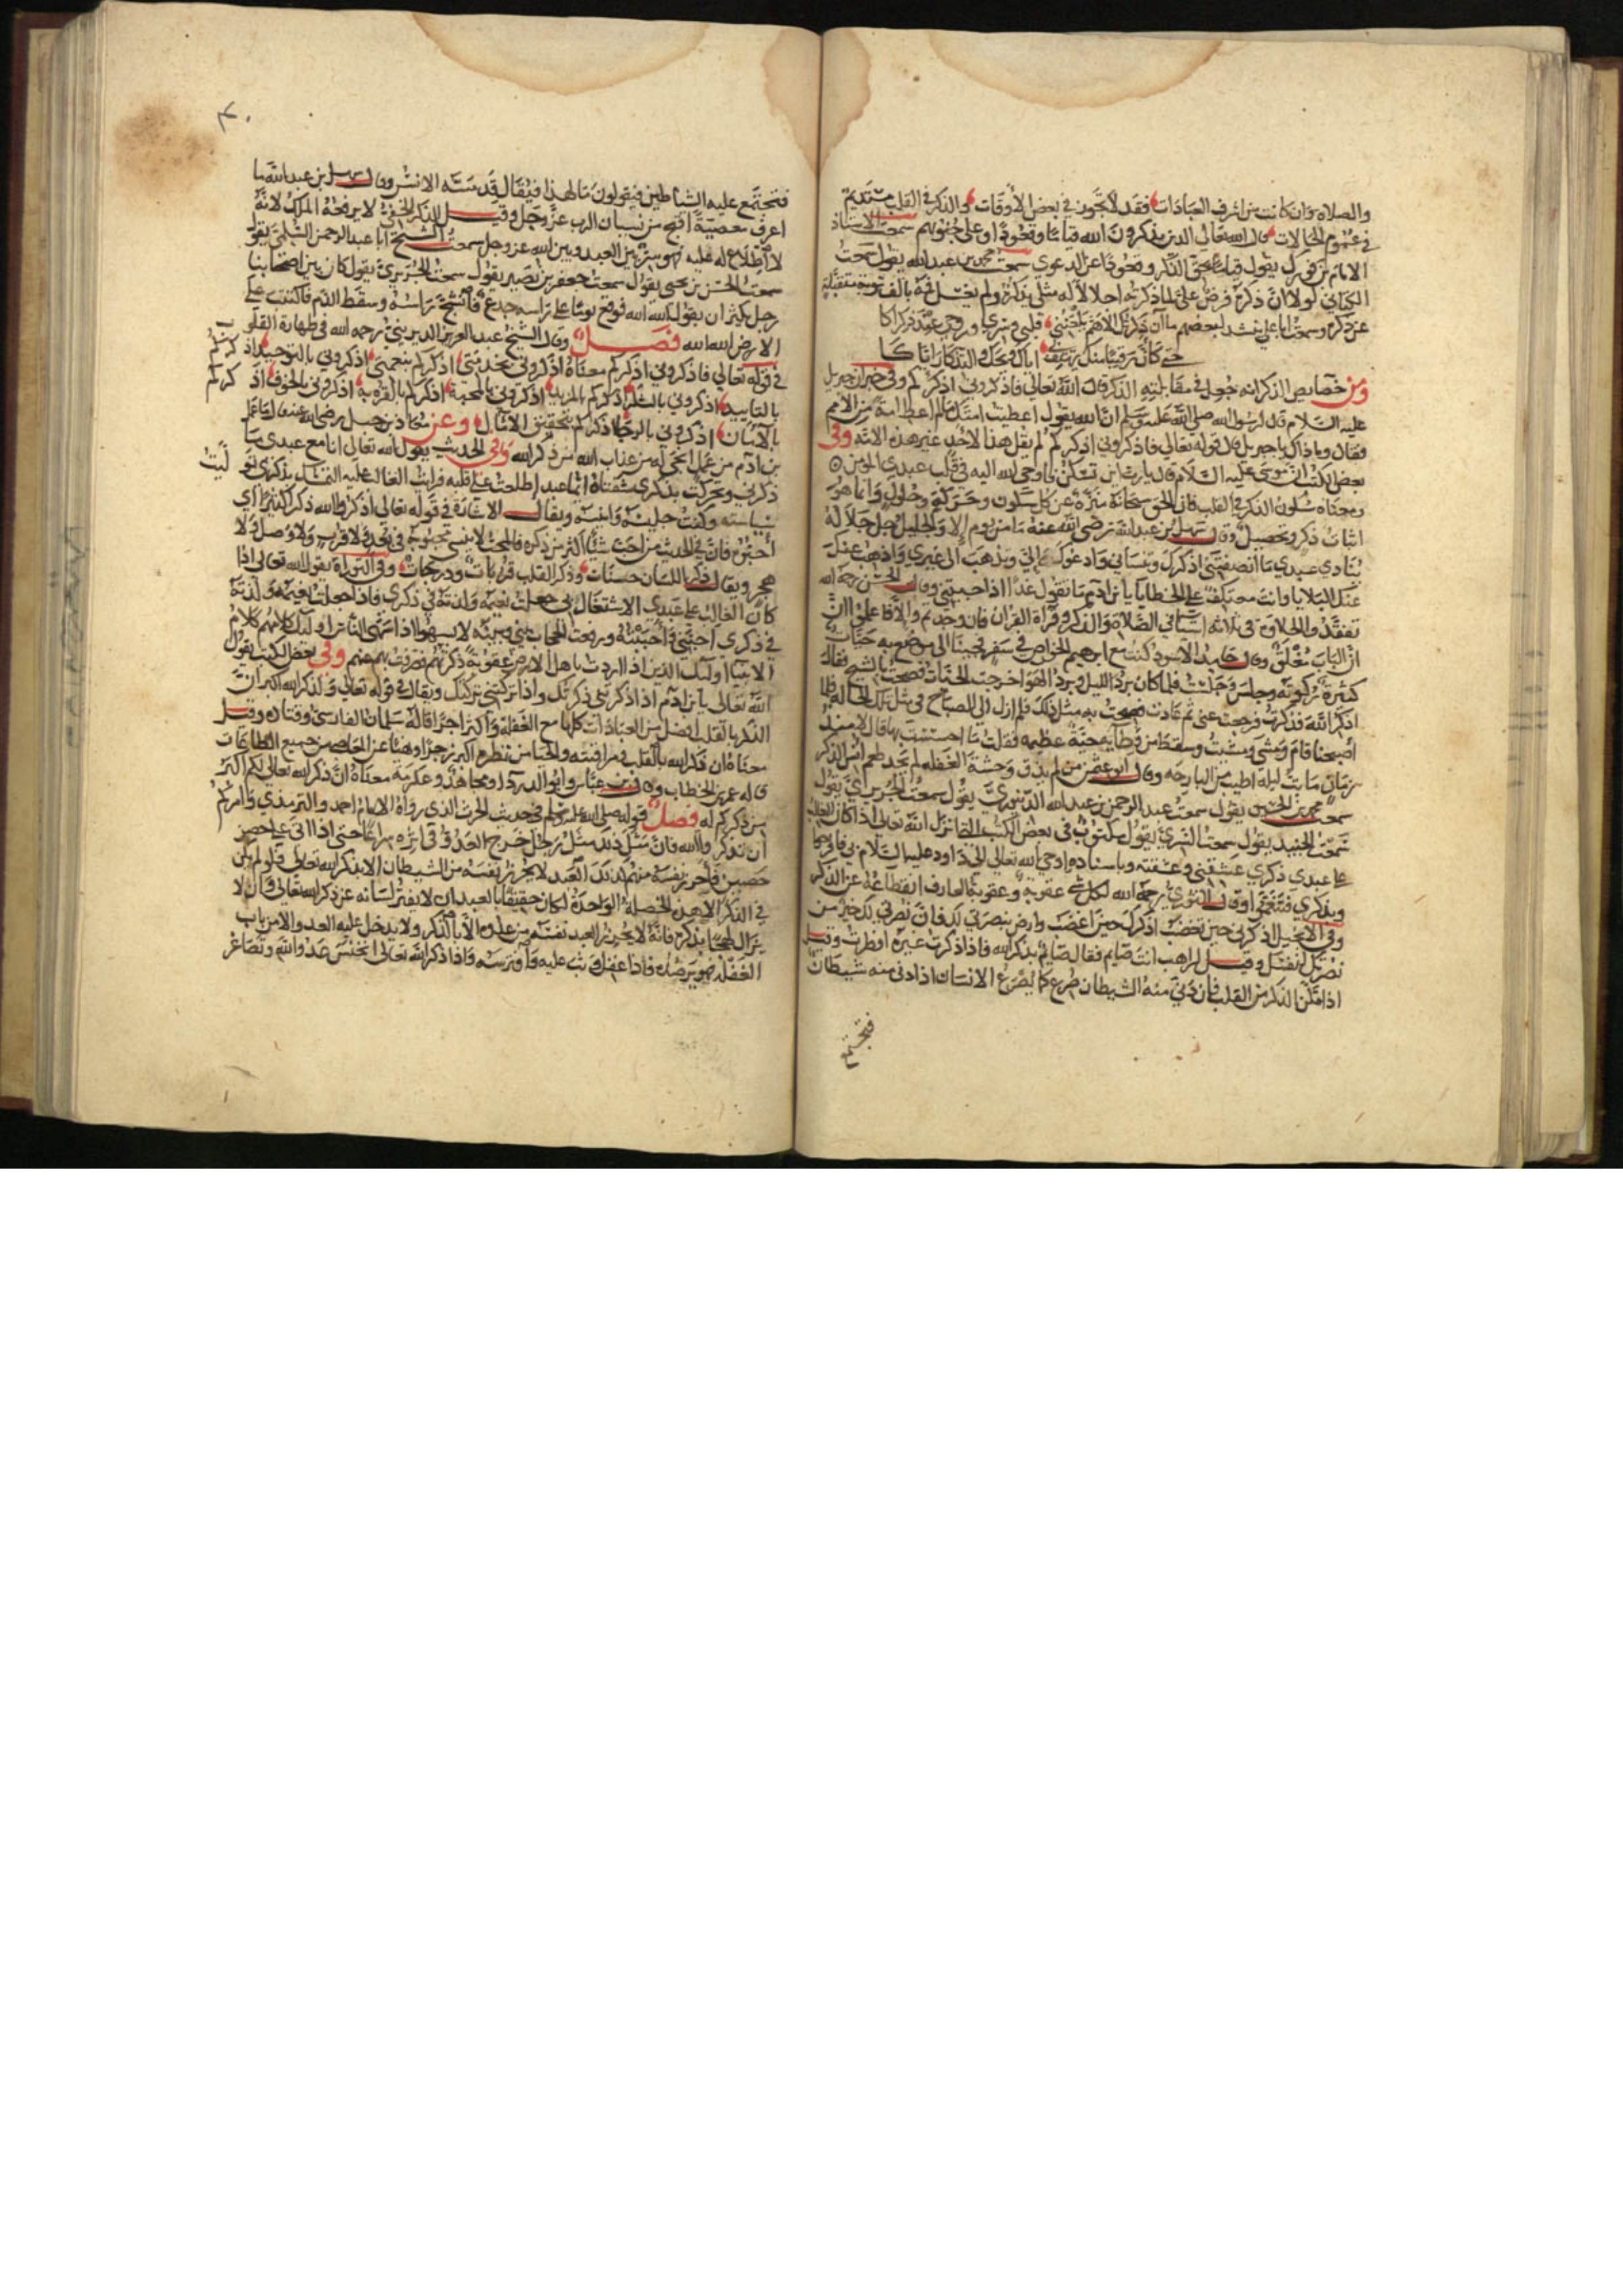 والصلاة وان كانت من اشرف العبادات فقد لا تجوز في بعض الاوقات والذكر في القلب مستديم
في عموم الحالات قال الله تعالى الذين يذكرون الله قياما وقعودا وعلى جنوبهم سمعت الاستاذ
الامام بن فورك يقول قياما بحق الذكر وقعودا عن الدعوى سمعت محمد بن عبد الله يقول سمعت
الكتاني لولا ان ذكره فرض علي لما ذكرته اجلالا له مثلي يذكره ولم يغسل فمه بالف توبة متقبلة
عن ذكره وسمعت ابا علي ينشد لبعضهم ما ان ذكرتك الا هم يلعنني قلبي وسري وروحي عند ذكراكا
حتى كأن رقيبا منك يهتف بي اياك ويحك والتذكار اياكا
ومن خصايص الذكر انه جعل في مقابلته الذكر قال الله تعالى فاذكروني اذكركم وفي خبر ان جبريل
عليه السلام قال لرسول الله صلى الله عليه وسلم ان الله يقول اعطيت امتك ما لم اعط امة من الامم
فقال وما ذاك يا جبريل قال قوله تعالى فاذكروني اذكركم لم يقل هذا لاحد غير هذه الامة وفي
بعض الكتب ان موسى عليه السلام قال يا رب اين تسكن فاوحى الله اليه في قلب عبدي المومن
ومعناه سكون الذكر في القلب فان الحق سبحانه منزه عن كل سكون وحركة وحلول وانما هو
اثبات ذكر وتحصيل وقال سهل بن عبد الله رضي الله عنه ما من يوم الا والجليل جل جلاله
ينادي عبدي ما انصفتني اذكرك وتنساني وادعوك الي وتذهب الى غيري واذهب عنك
عنك البلايا وانت معتكف على الخطايا يا بن آدم ما تقول غدا اذا جيتني وقال الحسن رحمه الله
تفقدوا الحلاوة في ثلاثة اشيا في الصلاة والذكر وقراة القران فان وجدتم والا فاعلموا ان
ان الباب مغلق وقال حامد الاسود كنت مع ابرهيم الخواص في سفر فجينا الى موضع به حيات
كثيرة ركوته وجلس وجلست فلما كان برد الليل وبرد الهوا خرجت الحيات فصحت بالشيخ فقال
اذكر الله فذكرت فرجعت عني ثم عادت فصحت به مثل ذلك فلم ازل الى الصباح في مثل تلك الحالة فلما
اصبحنا قام ومشى ومشيت وسقط من وطايه حية عظيمة فقلت ما احسست بها قال لا منذ
زمان ما بت ليلة اطيب من البارحه وقال ابو عثمن من لم يذق وحشة الغفله لم يجد طعم انس الذكر
سمعت محمد بن الحسين يقول سمعت عبد الرحمن بن عبد الله الدينوري يقول سمعت الجريري يقول
سمعت الجنيد يقول سمعت السري يقول مكتوب في بعض الكتب التي انزل الله تعالى اذا كان الغالب
على عبدي ذكري عشقني وعشقته وباسناده اوحى الله تعالى الى داود عليه السلام بي فافرحوا
وبذكري فتنعموا وقال الثوري رحمه الله لكل شي عقوبة وعقوبة العارف انقطاعه عن الذكر
وفي الانجيل اذكرني حين تغضب اذكرك حين اغضب وارض بنصرتي لك فان نصرتي لك خير من
نصرتك لنفسك وقيل لراهب انت صايم فقال صايم بذكر الله فاذا ذكرت غيره افطرت وقيل
اذا تمكن الذكر من القلب فان دني منه الشيطان صرع كما يصرع الانسان اذا دنى منه شيطان
فتجتمع
فتجتمع عليه الشياطين فيقولون ما لهذا فيقال قد مسه الانس وقال سهل بن عبد الله ما
اعرف معصية اقبح من نسيان الرب عز وجل وقيل الذكر الخفي لا يرفعه الملك لانه
لا اطلاع له عليه فهو سر بين العبد وبين الله عز وجل سمعت الشيخ ابا عبد الرحمن السلمي يقول
سمعت الحسن بن يحيى يقول سمعت جعفر بن نصير يقول سمعت الجريري يقول كان بين اصحابنا
رجل يكثر ان يقول الله الله فوقع يوما على راسه جدع فانشج راسه وسقط الدم فاكتتب على
الارض الله الله فصل وقال الشيخ عبد العزيز الديريني رحمه الله في طهارة القلوب
في قوله تعالى فاذكروني اذكركم معناه اذكروني بخدمتي اذكركم بنعمتي اذكروني بالتوحيد اذكركم
بالتاييد اذكروني بالشكر اذكركم بالمزيد اذكروني بالمحبة اذكركم بالقربة اذكروني بالخوف اذكركم
بالامان اذكروني بالرجا اذكركم بتحقيق الامال وعن معاذ بن جبل رضي الله عنه قال ما عمل
بن ادم من عمل انجى له من عذاب الله من ذكر الله وفي الحديث يقول الله تعالى انا مع عبدي ما
ذكرني وتحركت بذكري شفتاه ايما عبد اطلعت على قلبه فرايت الغالب عليه التمسك بذكري توليت
سياسته وكنت جليسه وانيسه ويقال الاشارة في قوله تعالى اذكروا الله ذكرا كثيرا اي
احبوه فان في الحديث من احب شيئا اكثر من ذكره فالمحب لا ينسى محبوبه في بعد ولا قرب ولا وصل ولا
هجر ويقال ذكر اللسان حسنات وذكر القلب قربات ودرجات وفي التوراة يقول الله تعالى اذا
كان الغالب على عبدي الاشتغال بي جعلت نعيمه ولذته في ذكري فاذا جعلت نعيمه ولذته
في ذكري احبني واحببته ورفعت الحجاب بيني وبينه لا يسهو اذا سهى الناس اوليك كلامهم كلام
الانبيا اوليك الذين اذا اردت باهل الارض عقوبة ذكرتهم فصرفت بهم عنهم وفي بعض الكتب يقول
الله تعالى يا بن آدم اذا ذكرتني ذكرتك واذا تركتني تركتك ويقال في قوله تعالى ولذكر الله اكبر ان
الذكر بالقلب افضل من العبادات كلها مع الغفلة واكبر اجرا قاله سلمان الفارسي وقتادة وقيل
معناه ان ذكر الله بالقلب في مراقبته والحيا من نظره اكبر زجرا ومنعا عن المعاصي من جميع الطاعات
قاله عمر بن الخطاب وقال ابن عباس وابو الدردا ومجاهد وعكرمة معناه ان ذكر الله تعالى لكم اكبر
من ذكركم له فصل قوله صلى الله عليه وسلم في حديث الحرث الذي رواه الامام احمد والترمذي وامركم
ان تذكروا الله فان مثل ذلك مثل رجل خرج العدو في اثره سراعا حتى اذا اتى على حصن
حصين فاحرز نفسه منهم كذلك العبد لا يحرز نفسه من الشيطان الا بذكر الله تعالى فلو لم يكن
في الذكر الا هذه الخصلة الواحدة لكان حقيقا بالعبد ان لا يفتر لسانه عن ذكر الله تعالى وان لا
يزال لهجا بذكره فانه لا يحرز العبد نفسه من عدوه الا بالذكر ولا يدخل عليه العدو الا من باب
الغفلة فهو يرصده فاذا غفل وثب عليه وافترسه واذا ذكر الله تعالى انخنس عدو الله وتصاغر